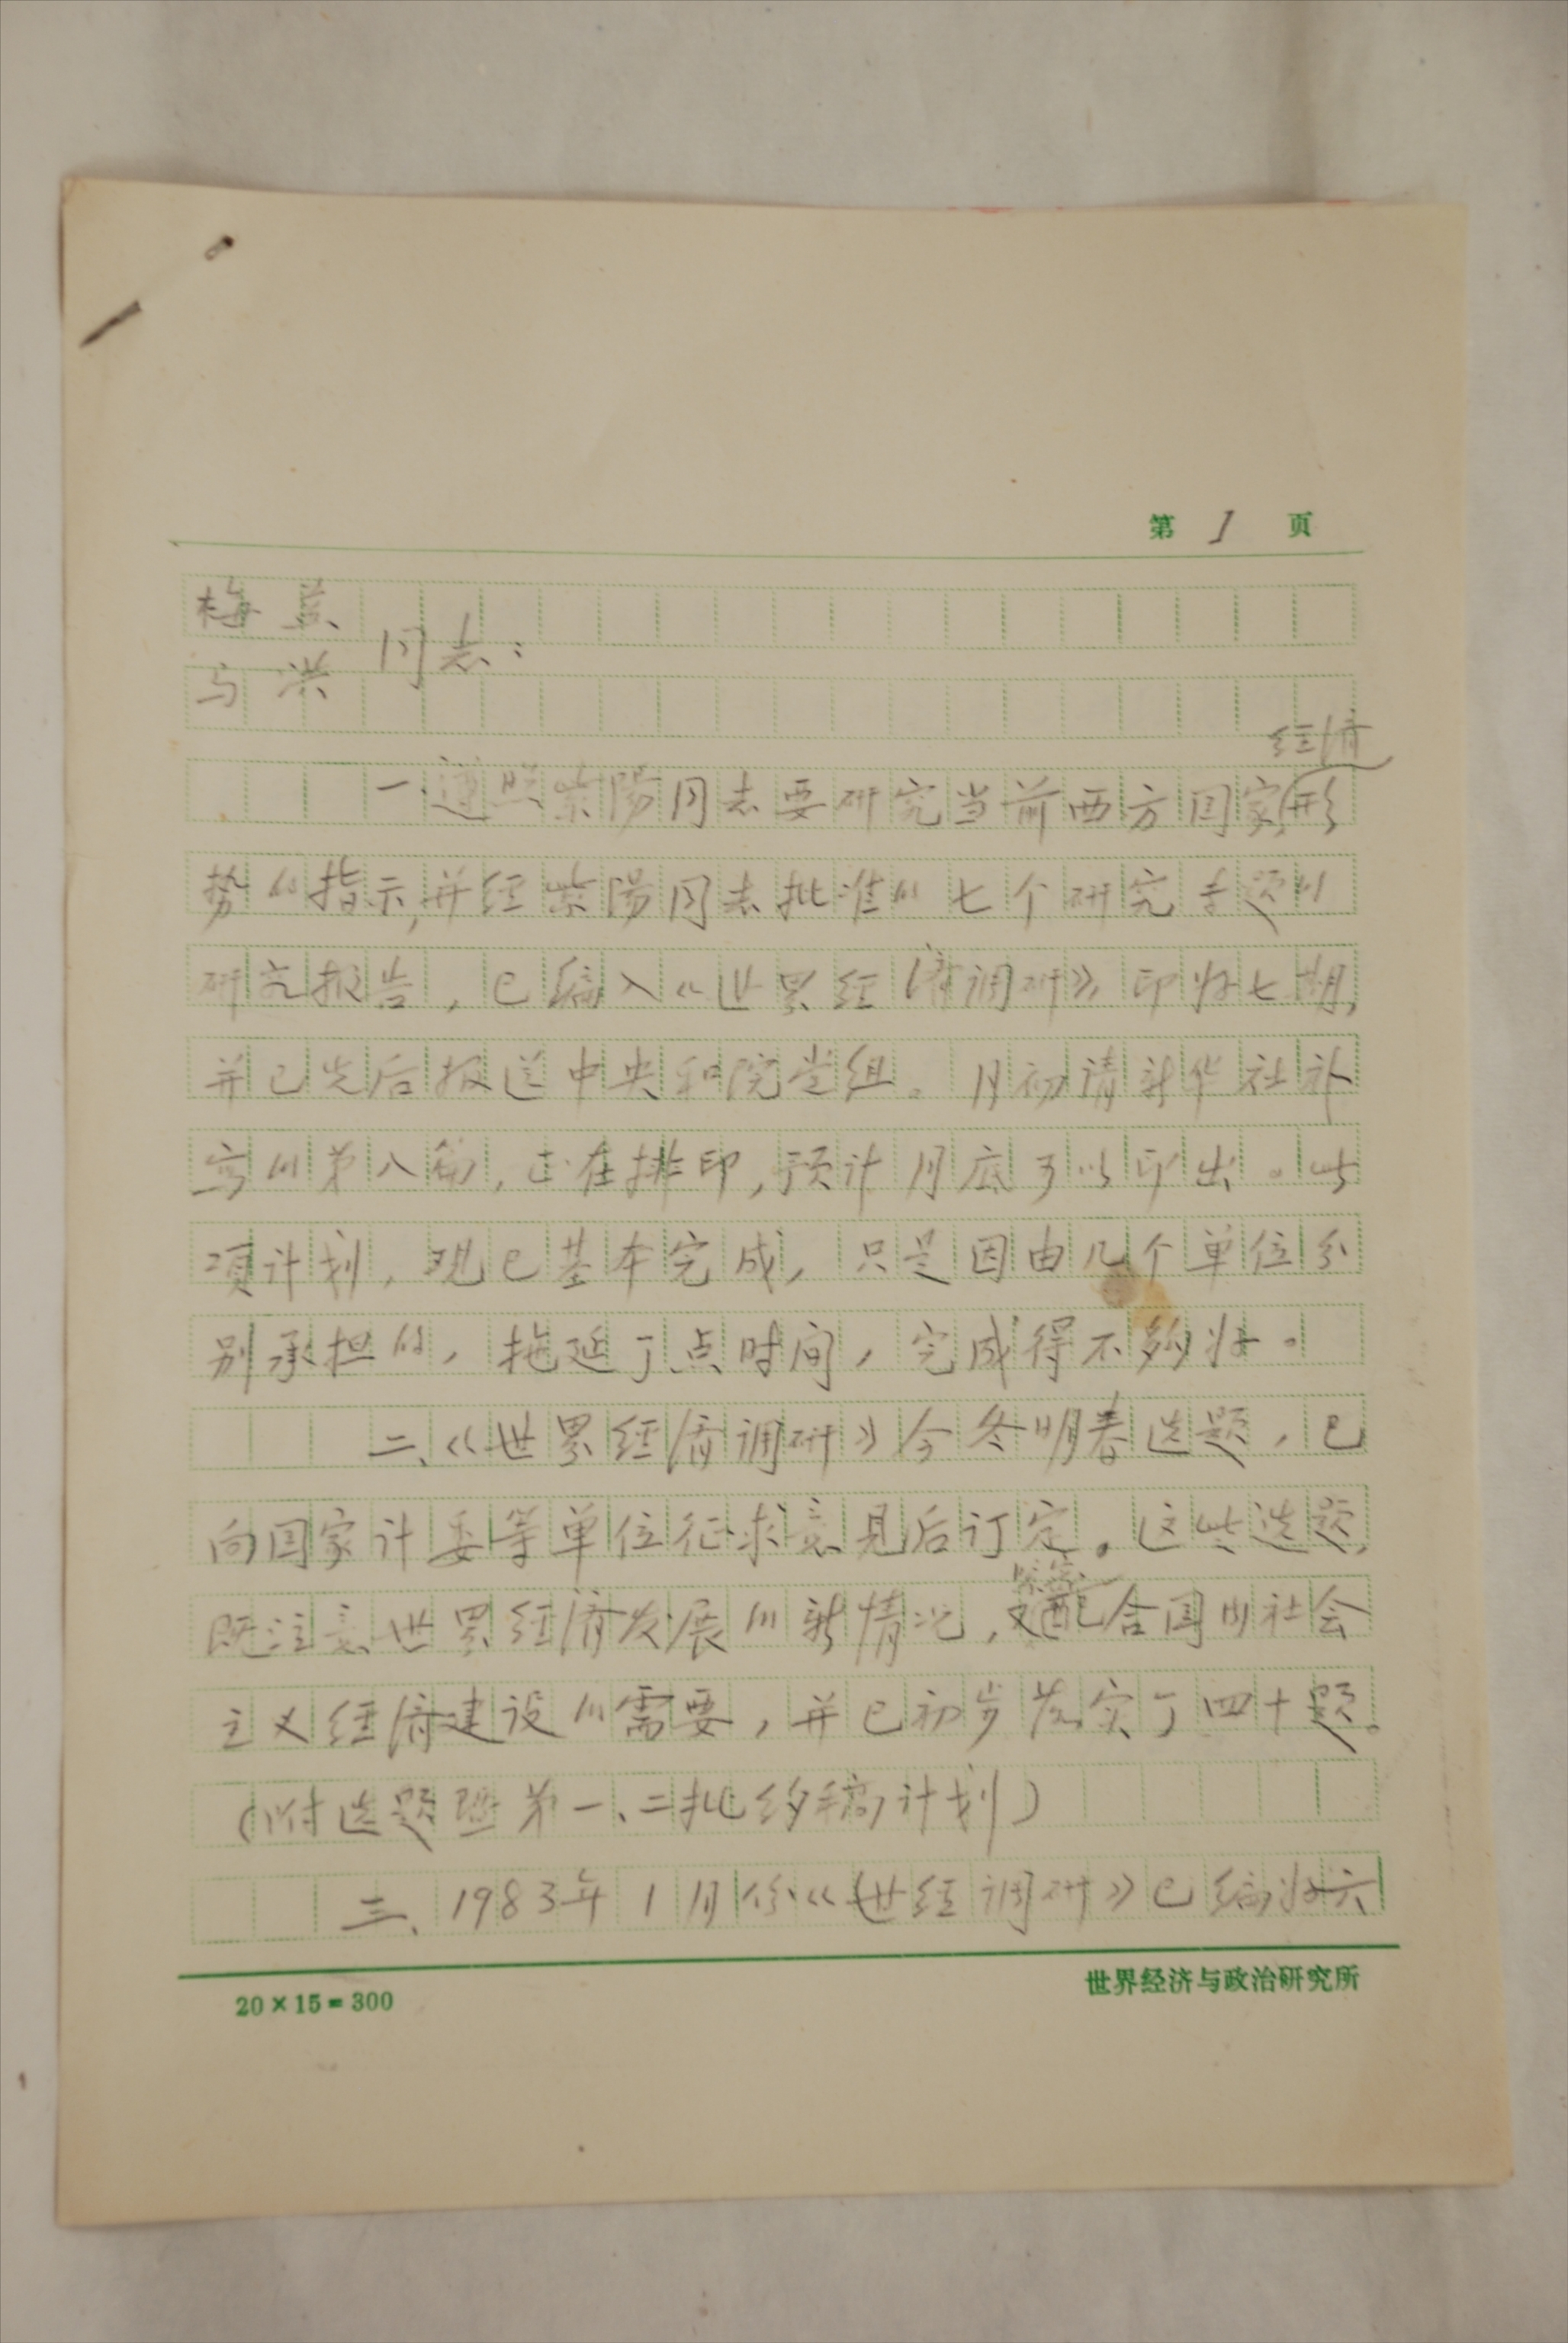 第 1 页
梅益
同志:
马洪
经济
一、遵照紫陽同志要研究当前西方国家形
势的指示,并经紫陽同志批准的七个研究专题的
研究报告,已编入《世界经济调研》印好七期,
并已先后报送中央和院党组。月初请新华社补
写的第八篇,正在排印,预计月底可以印出。此
项计划,现已基本完成,只是因由几个单位分
别承担的,拖延了点时间,完成得不够好。
二、《世界经济调研》今冬明春选题,已
向国家计委等单位征求意见后订定。这些选题,
既注意世界经济发展的新情况,又配合国内社会
主义经济建设的需要,并已初步落实了四十题。
(附选题暨第一、二批约稿计划)
三、1983年1月份《世经调研》已编好六
20×15=300
世界经济与政治研究所